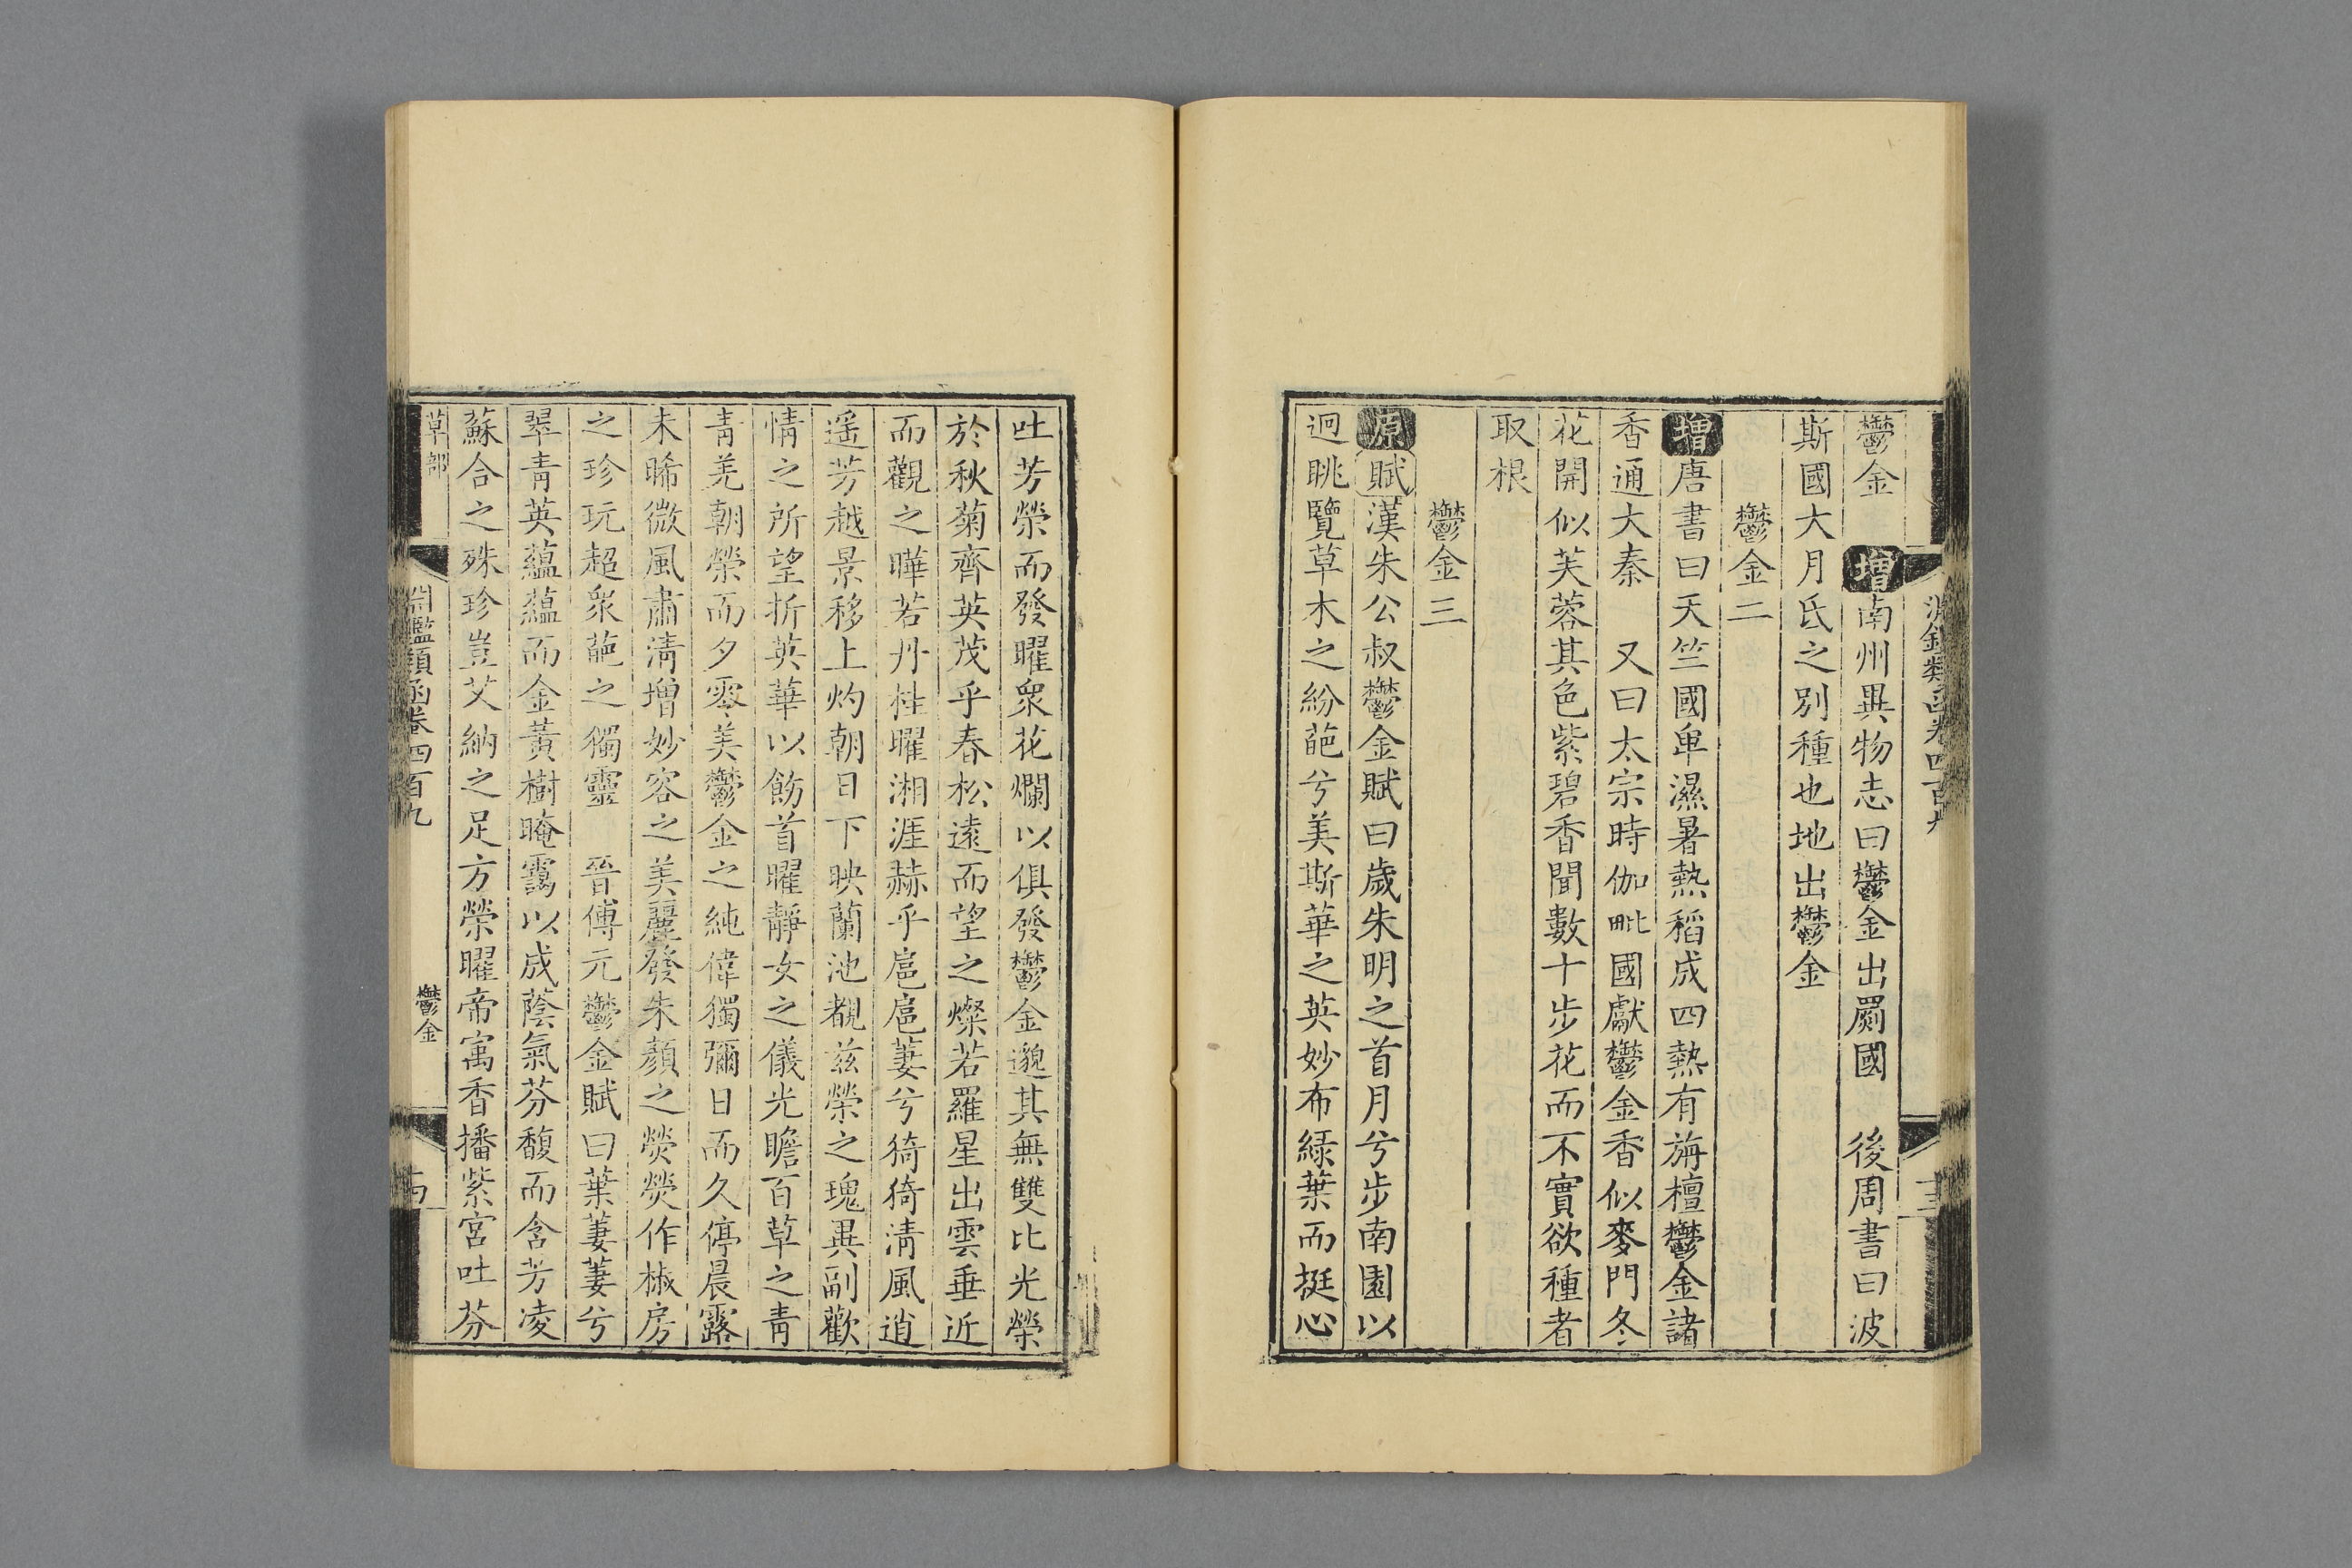 鬱金　增南州異物志曰鬱金出罽國　後周書曰波
斯國大月氏之別種也地出鬱金
鬱金二
增唐書曰天竺國卑濕暑熱稻成四熱有旃檀鬱金諸
香通大秦　又曰太宗時伽毗國獻鬱金香似麥門冬
花開似芙蓉其色紫碧香聞數十步花而不實欲種者
取根
鬱金三
原賦漢朱公叔鬱金賦曰歲朱明之首月兮步南園以
迥眺覽草木之紛葩兮美斯華之英妙布綠葉而挺心
吐芳榮而發曜衆花爛以俱發鬱金邈其無雙比光榮
於秋菊齊英茂乎春松遠而望之燦若羅星出雲垂近
而觀之曄若丹桂曜湘涯赫乎扈扈萋兮猗猗清風逍
遥芳越景移上灼朝日下映蘭池覩兹榮之瑰異副歡
情之所望折英華以飾首曜靜女之儀光瞻百草之青
青羌朝榮而夕零美鬱金之純偉獨彌日而久停晨露
未晞微風肅清增妙容之美麗發朱顏之熒熒作椒房
之珍玩超衆葩之獨靈　晉傅元鬱金賦曰葉萋萋兮
翠青英蘊蘊而金黃樹晻靄以成蔭氣芬馥而含芳凌
蘇合之殊珍豈艾納之足方榮曜帝寓香播紫宮吐芬
草部
淵鑑類函卷四百九
鬱金